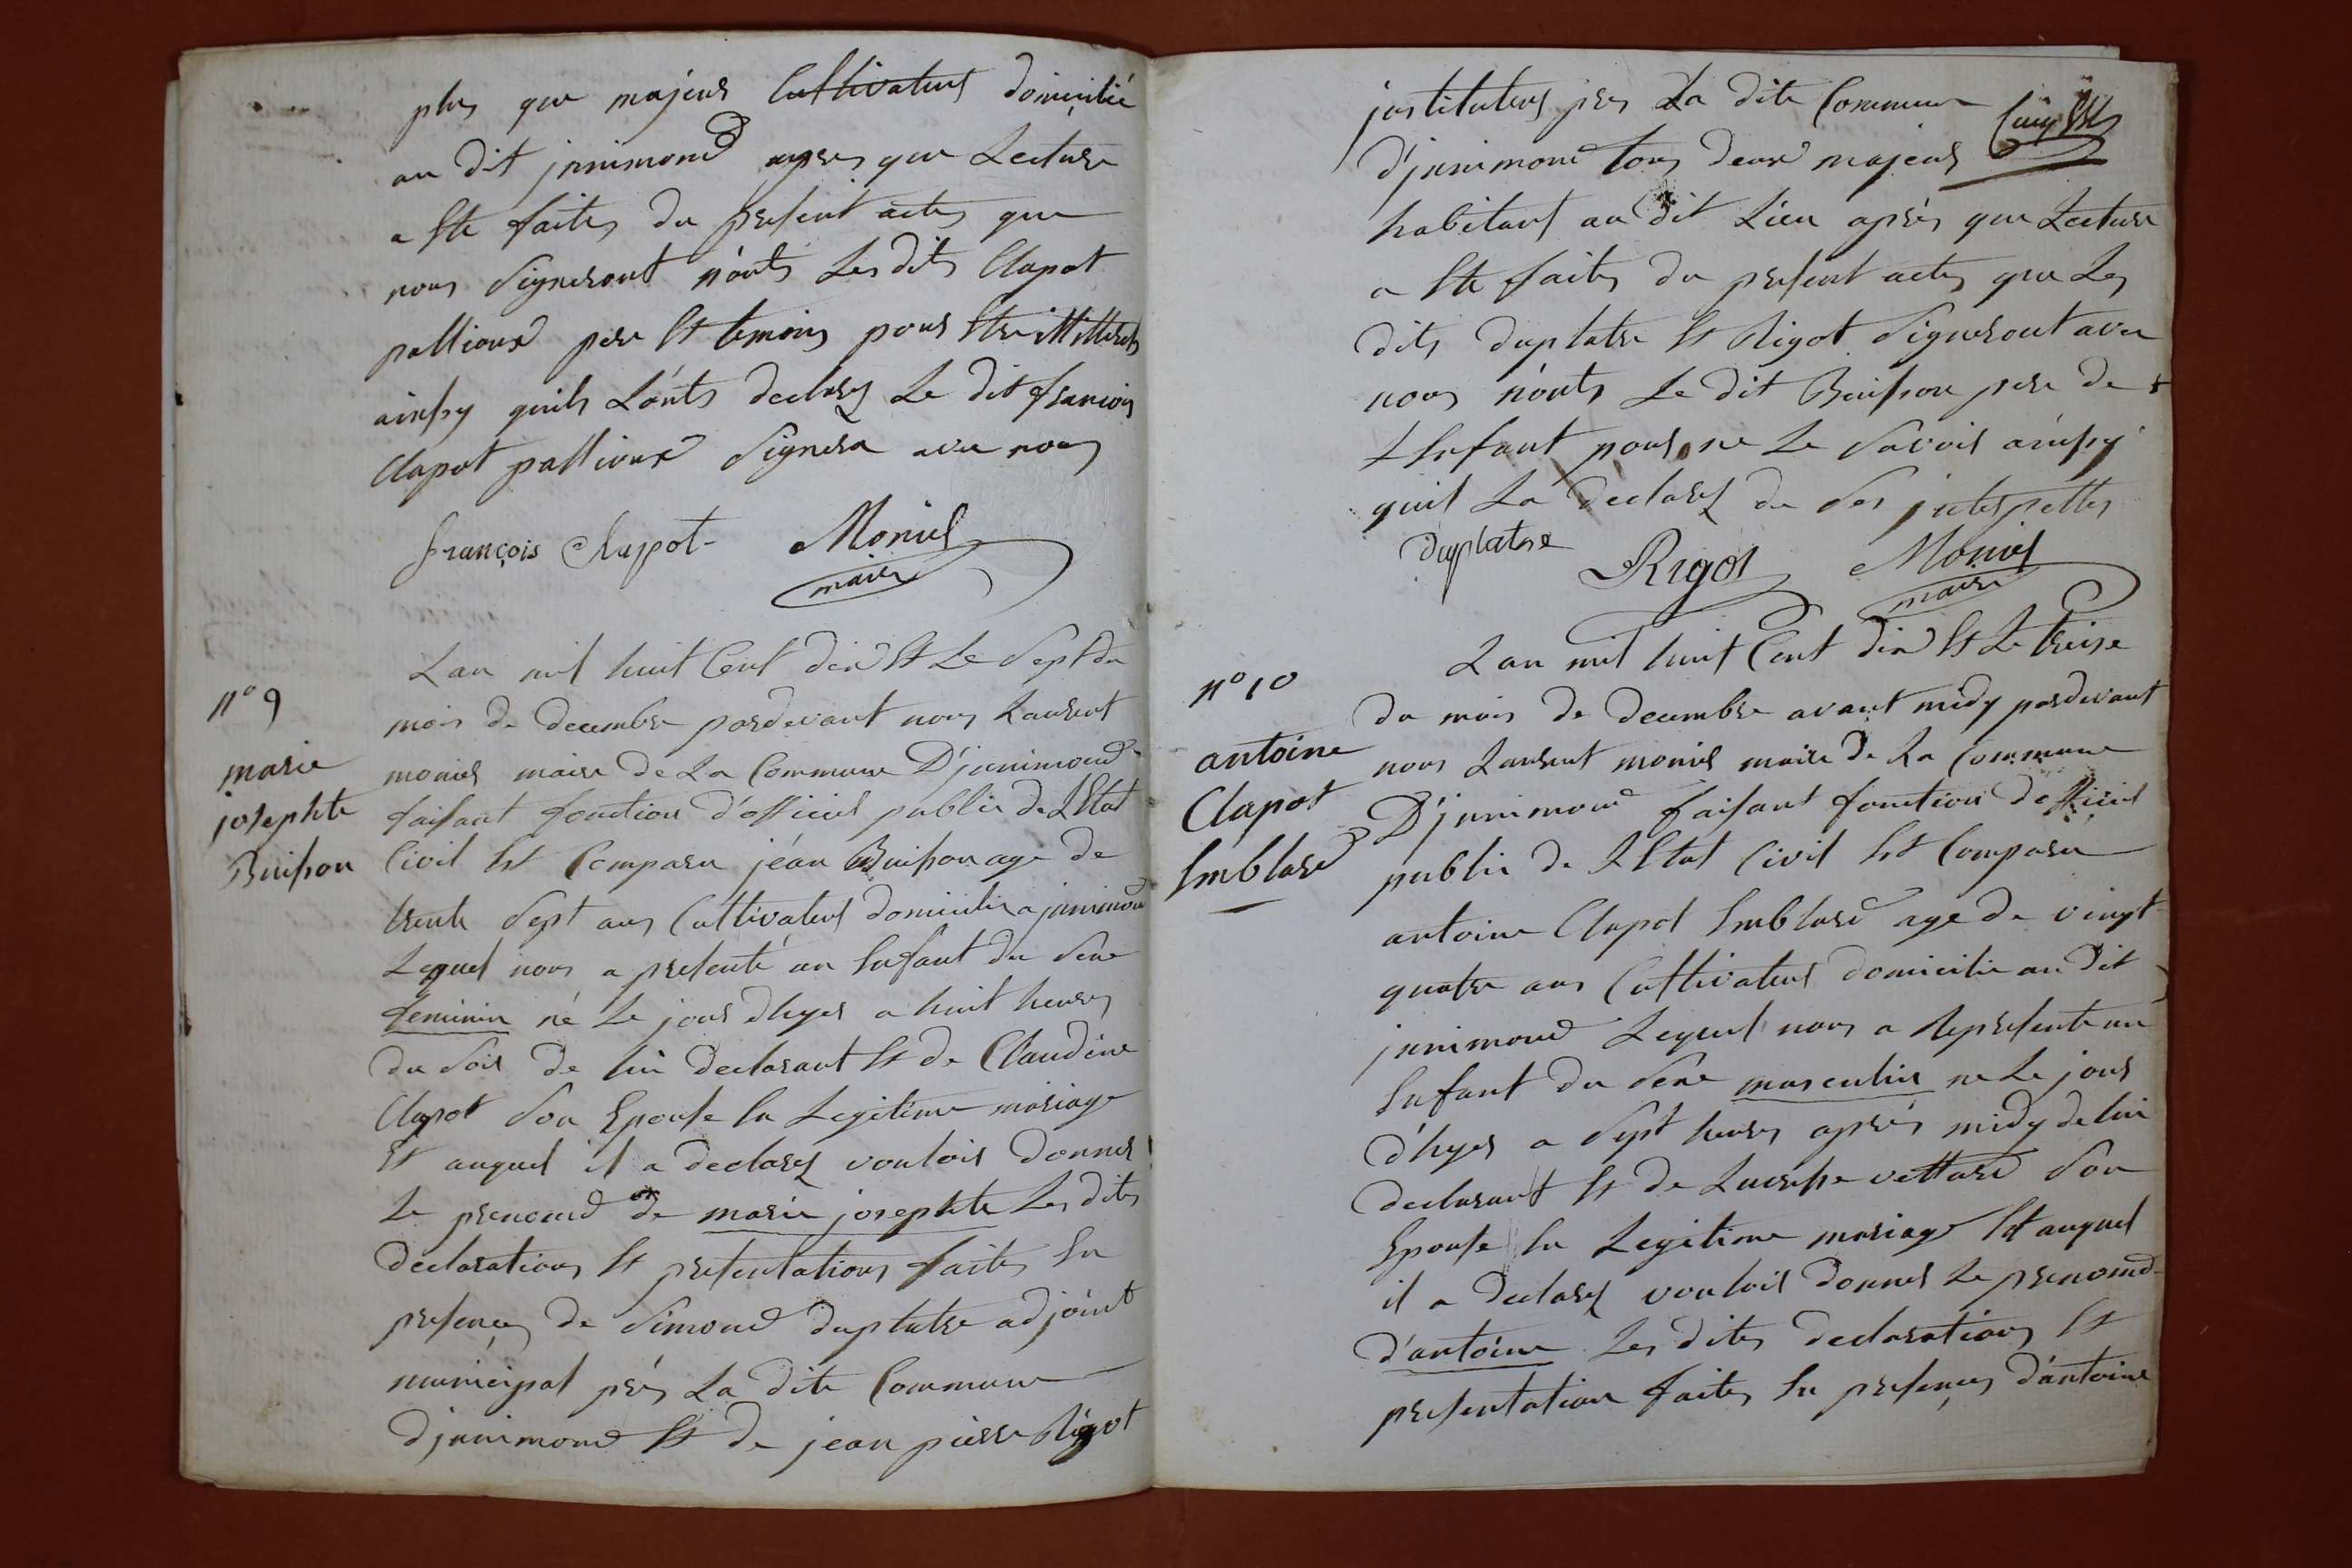 plus que majeur Cultivateur domicilié
au dit jnnimond apres que Lecture
a Ete faites du present actes que
nous Signeront n'onts Les dits Clapot
pallioux pere Et temoins pour Etre illitterets
ainsy quils L'onts declarez Le dit francois
Clapot pallioux Signera avec nous
françois Clapot Monier
maire
n° 9
marie
josephte
Buisson
Lan mil huit Cent dix Et Le Sept du
mois de decembre pardevant nous Laurent
monier maire de La Commune D'jnnimond
faisant fonction d'officier public de LEtat
Civil Est Comparu jéan Buisson age de
trente Sept ans Cultivateur domicilie a jnnimond
Lequel nous a presenté un Enfant du Sexe
feminin né Le jour dhyer a huit heures
du Soir de lui declarant Et de Claudine
Clapot Son Epouse En Legitime mariage
Et auquel il a declarez vouloir donner
Le prenomd de marie josephte Les dites
declarations Et presentations faites En
presences de Simond duplatre adjoint
municipal prés La dite Commune
djnnimond Et de jean pierre Rigot
jnstituteur pres La dite Commune
d'jnnimond tous deux majeur
habitant au dit Lieu aprés que Lecture
a Ete faites du present actes que Les
dits duplatre Et Rigot Signeront avec
nous n'onts Le dit Buisson pere de
LEnfant pour ne Le Savoir ainsy
quil La declarez de Ses jnterpelles
duplatre Rigot Monier
maire
n° 10
antoine
Clapot
Emblard
Lan mil huit Cent dix Et Le treise
du mois de decembre avant midy pardevant
nous Laurent monier maire de La Commune
D'jnnimond faisant fonction dofficier
public de LEtat Civil Est Comparu
antoine Clapot Emblard age de vingt
quatre ans Cultivateur domicilie au dit
jnnimond Lequel nous a Represente un
Enfant du Sexe masculin ne Le jour
d'hyer a Sept heures aprés midy de lui
declarant Et de Lucresse vettard Son
Epouse En Legitime mariage Et auquel
il a declarez vouloir donner Le prenomd
d'antoine Les dites declarations Et
presentation faites En presences d'antoine